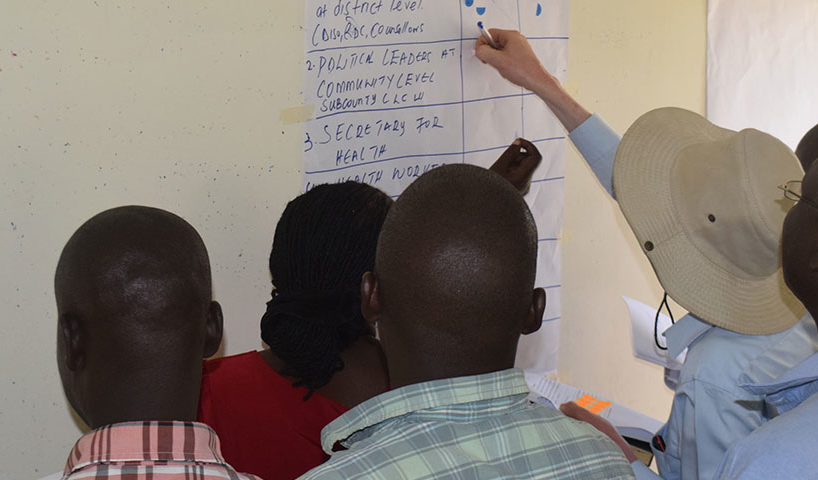 at district level.
(DISO, RDC,
2. POLITICAL LEADERS AT
COMMUNITY LEVEL
SUBCOUNTY
3. SECRETARY FOR
HEALTH
HEALTH